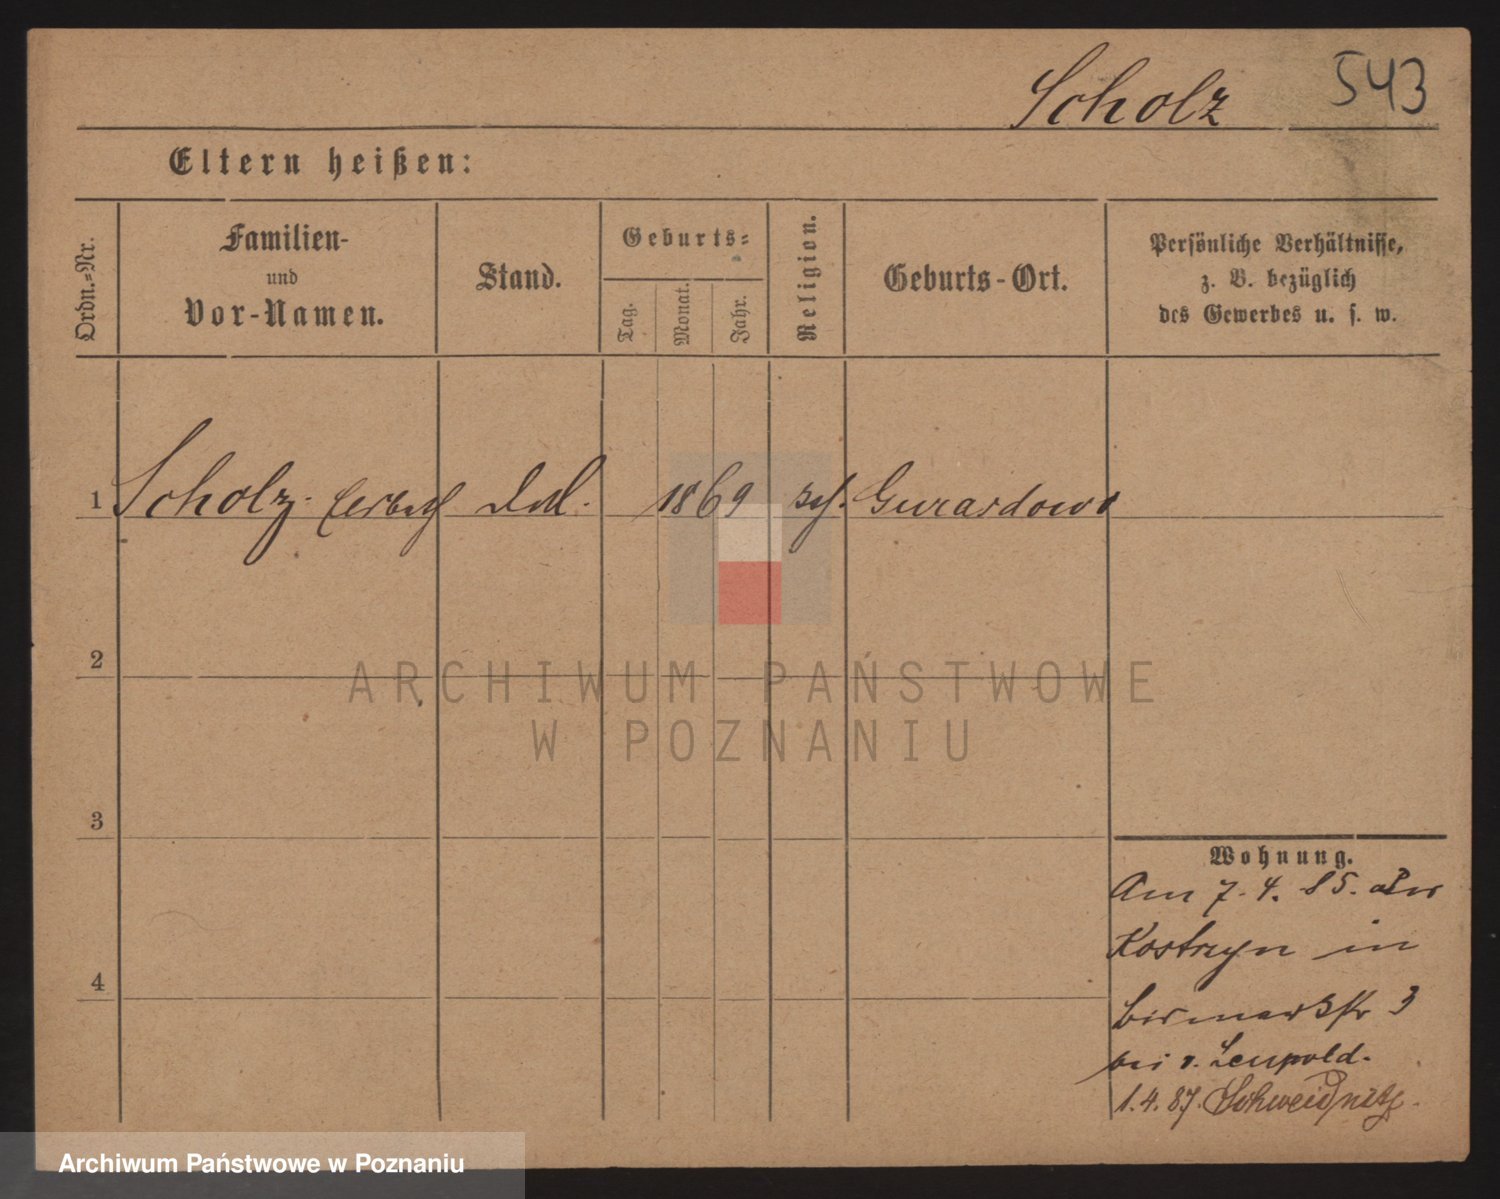 Scholz 543
Eltern heißen:
Ordn.=Nr.
Familien-
und
Vor-Namen.
Stand.
Geburts=
Tag.
Monat.
Jahr.
Religion.
Geburts-Ort.
Persönliche Verhältnisse,
z. B. bezüglich
des Gewerbes u. s. w.
1 Scholz 1869 Gurardowo
2
3
4
Wohnung.
Am 7.4.85.
Kostrzyn in
Bismarckstr 3
bei v. Leupold.
1.4.87. Schweidnitz.
ARCHIWUM PAŃSTWOWE
W POZNANIU
Archiwum Państwowe w Poznaniu